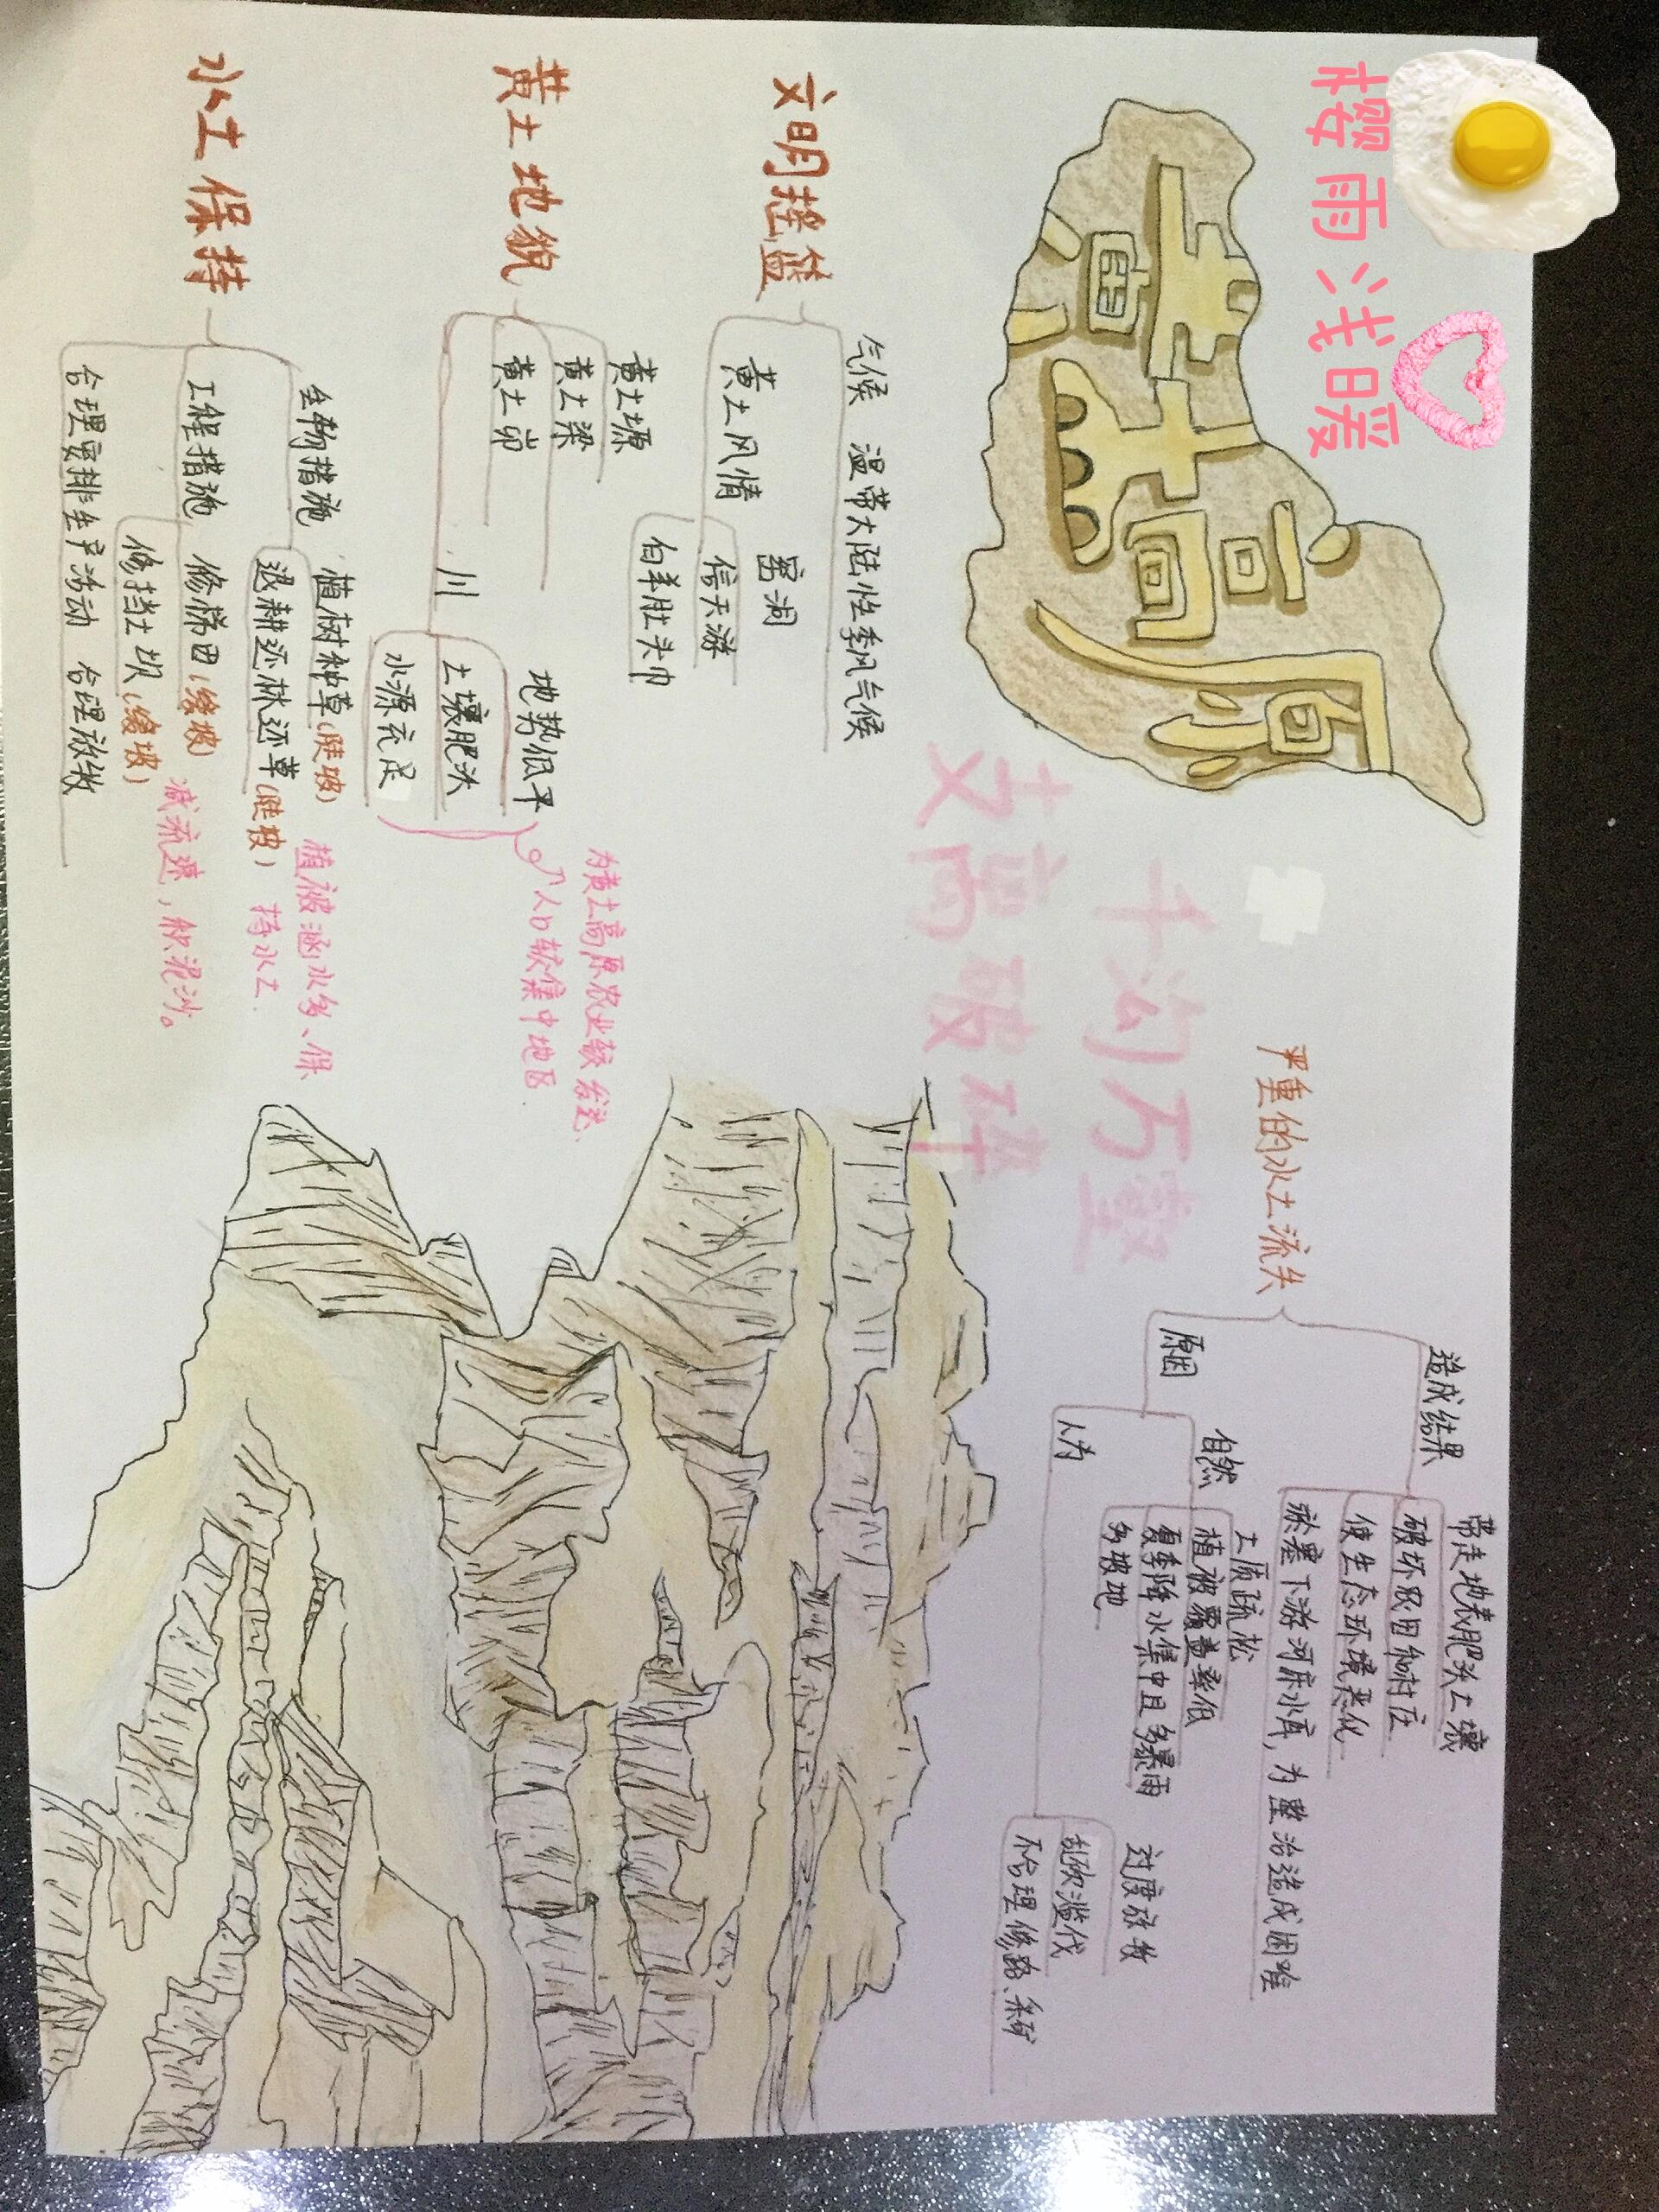 樱雨浅暖
黄土高原
文明摇篮
气候 温带大陆性季风气候
黄土风情
窑洞
信天游
白羊肚头巾
黄土地貌
黄土塬
黄土梁
黄土峁
川
地势低平
土壤肥沃
水源充足
为黄土高原农业较发达、
人口较集中地区.
水土保持
生物措施
植树种草(陡坡)
退耕还林还草(陡坡)
植被涵水多、保
持水土.
工程措施
修梯田(缓坡)
修挡土坝(缓坡)
减流速,积泥沙。
合理安排生产活动 合理放牧
千沟万壑
支离破碎
严重的水土流失
造成结果
带走地表肥沃土壤
破坏农田和村庄
使生态环境恶化
淤塞下游河床水库,为整治造成困难
原因
自然
土质疏松
植被覆盖率低
夏季降水集中且多暴雨
多坡地
人为
过度放牧
乱砍滥伐
不合理修路、采矿